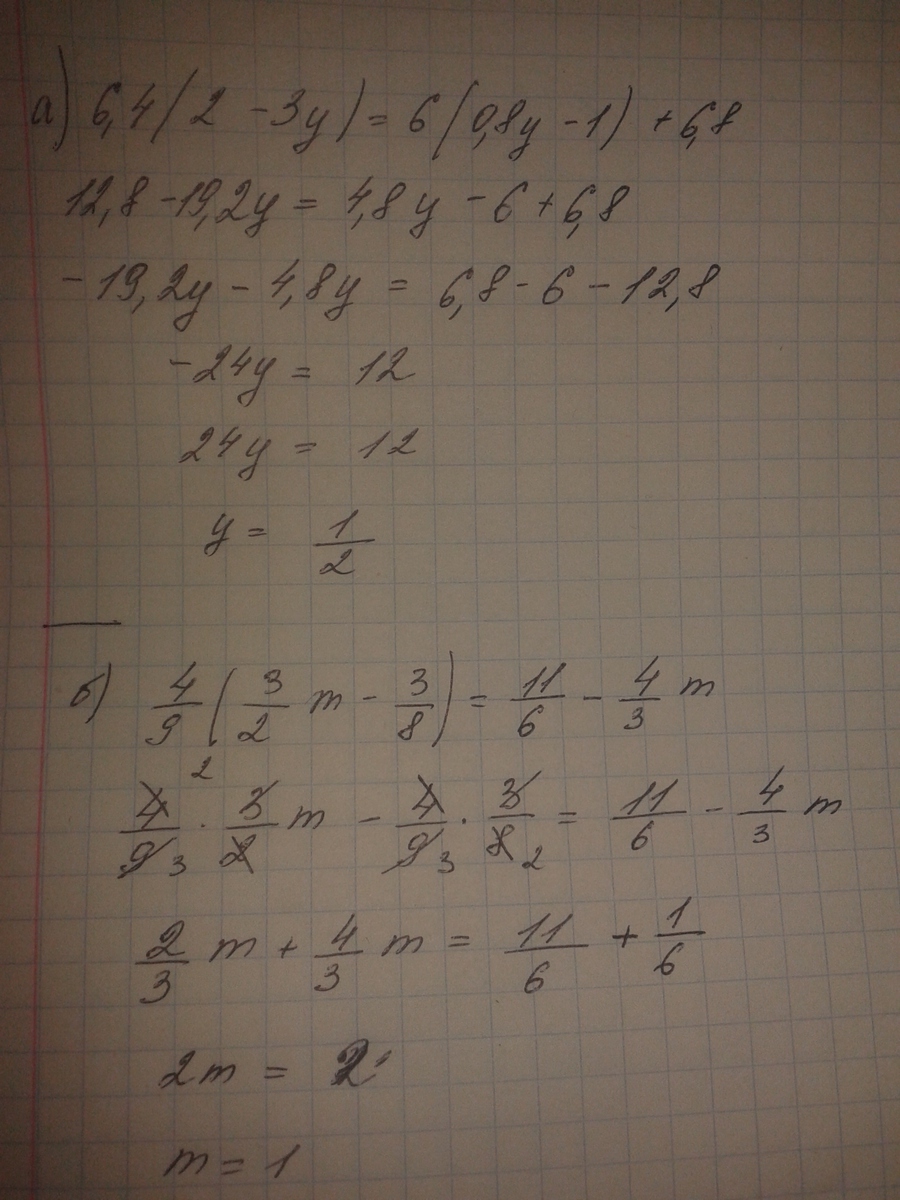 а) 6,4(2 - 3y) = 6(0,8y - 1) + 6,8
12,8 - 19,2y = 4,8y - 6 + 6,8
- 19,2y - 4,8y = 6,8 - 6 - 12,8
- 24y = 12
24y = 12
y = 1/2
б) 4/9 (3/2 m - 3/8) = 11/6 - 4/3 m
2
4/9 3 · 3/2 m - 4/9 3 · 3/8 2 = 11/6 - 4/3 m
2/3 m + 4/3 m = 11/6 + 1/6
2m = 2
m = 1